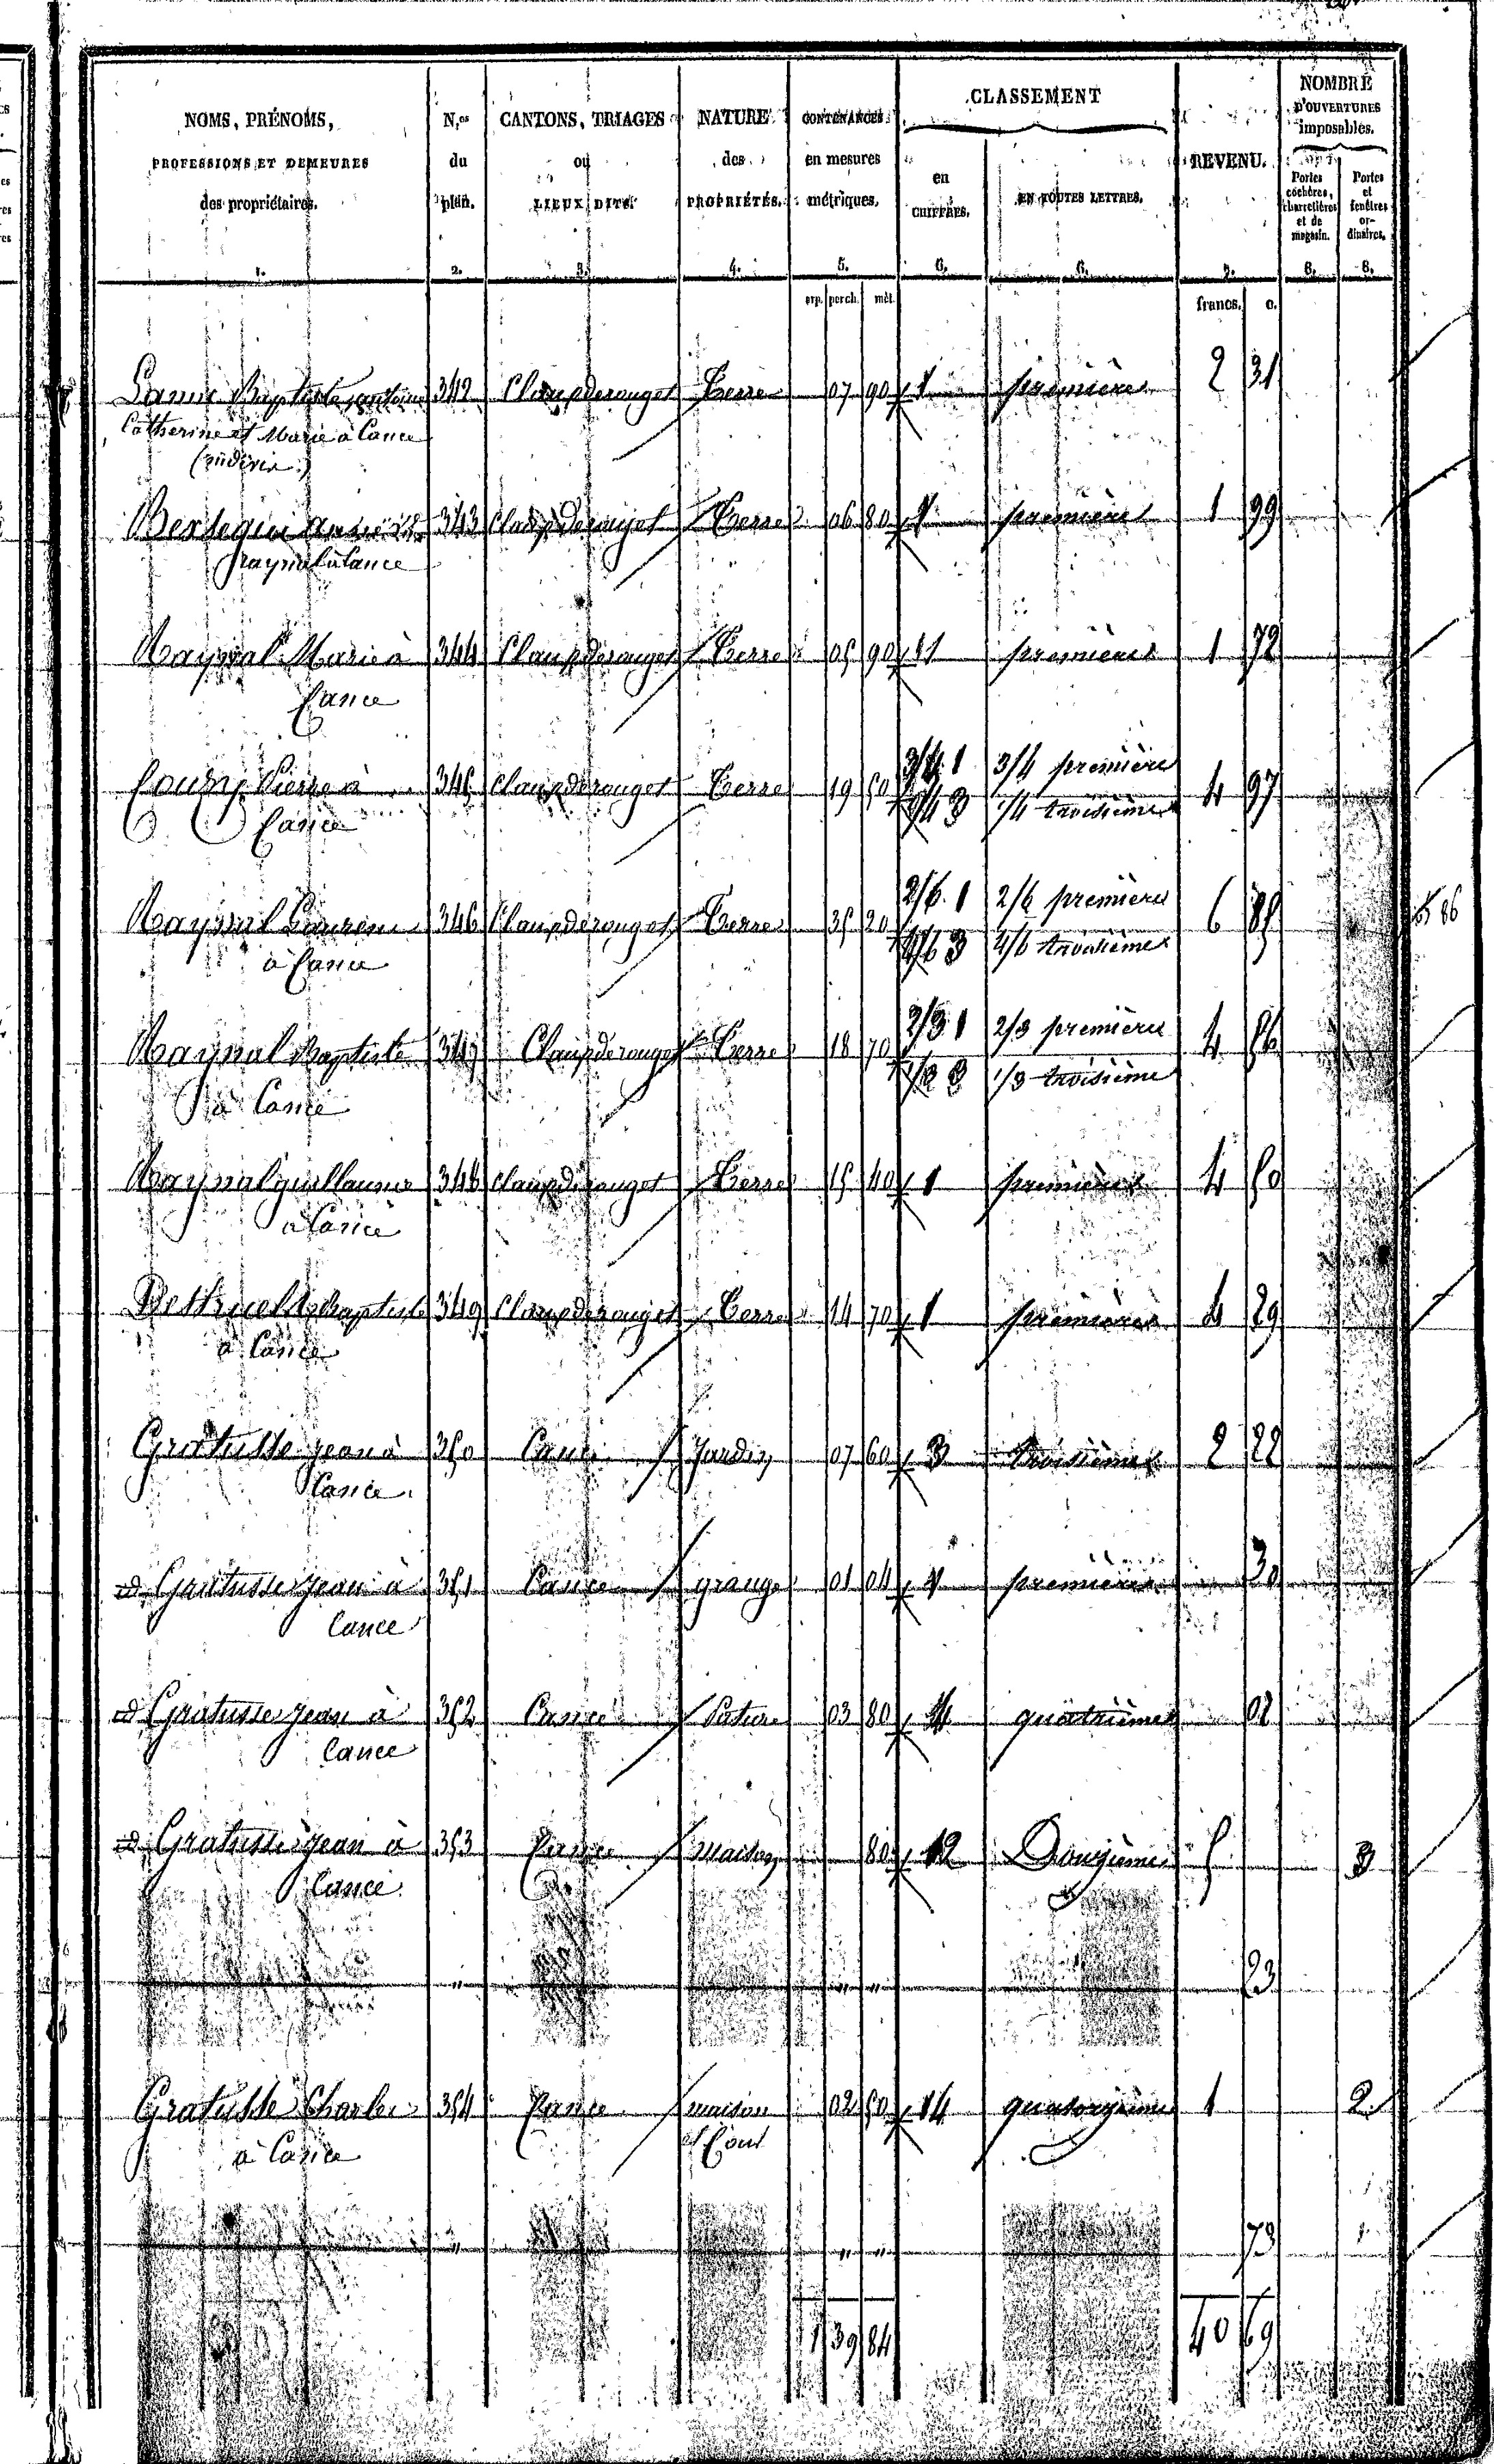 NOMS, PRÉNOMS, PROFESSIONS ET DEMEURES des propriétaires. 1.
N.os du plan. 2.
CANTONS, TRIAGES ou LIEUX DITS. 3.
NATURE des PROPRIÉTÉS. 4.
CONTENANCES en mesures métriques. 5.
CLASSEMENT
en CHIFFRES. 6.
EN TOUTES LETTRES. 6.
REVENU. 7.
NOMBRE D'OUVERTURES imposables.
Portes cochères, charretières et de magasin. 8.
Portes et fenêtres ordinaires. 8.
arp. perch. mèt. francs. c.
Baptiste, antoine 342 Claupderouget Terre 07 90 1 première 2 31
Catherine et Marie à Cance
(indivis)
343 Claupderouget Terre 06 80 1 première 1 99
Raynal à Cance
Raynal Marie à 344 Claupderouget Terre 05 90 1 première 1 72
Cance
Pierre à 345 Claupderouget Terre 19 50 3/4 1 3/4 première 4 97
Cance 1/4 3 1/4 troisième
Raynal 346 Claupderouget Terre 35 20 2/6 1 2/6 première 6 85 86
à Cance 4/6 3 4/6 troisième
Raynal Baptiste 347 Claupderouget Terre 18 70 2/3 1 2/3 première 4 56
à Cance 1/3 3 1/3 troisième
Raynal guillaume 348 Claupderouget Terre 15 40 1 première 4 50
à Cance
Baptiste 349 Claupderouget Terre 14 70 1 première 4 29
à Cance
Gratusse jean à 350 Cance jardin 07 60 3 troisième 2 22
Cance
id Gratusse jean à 351 Cance grange 01 04 1 première 30
Cance
id Gratusse jean à 352 Cance Pature 03 80 4 quatrième 02
Cance
id Gratusse jean à 353 Cance maison 80 12 Douzième 5 3
Cance
" " " 23
Gratusse Charles 354 Cance maison 02 50 14 quatorzième 1 2
à Cance et Cour
" " " 73
1 39 84 40 69